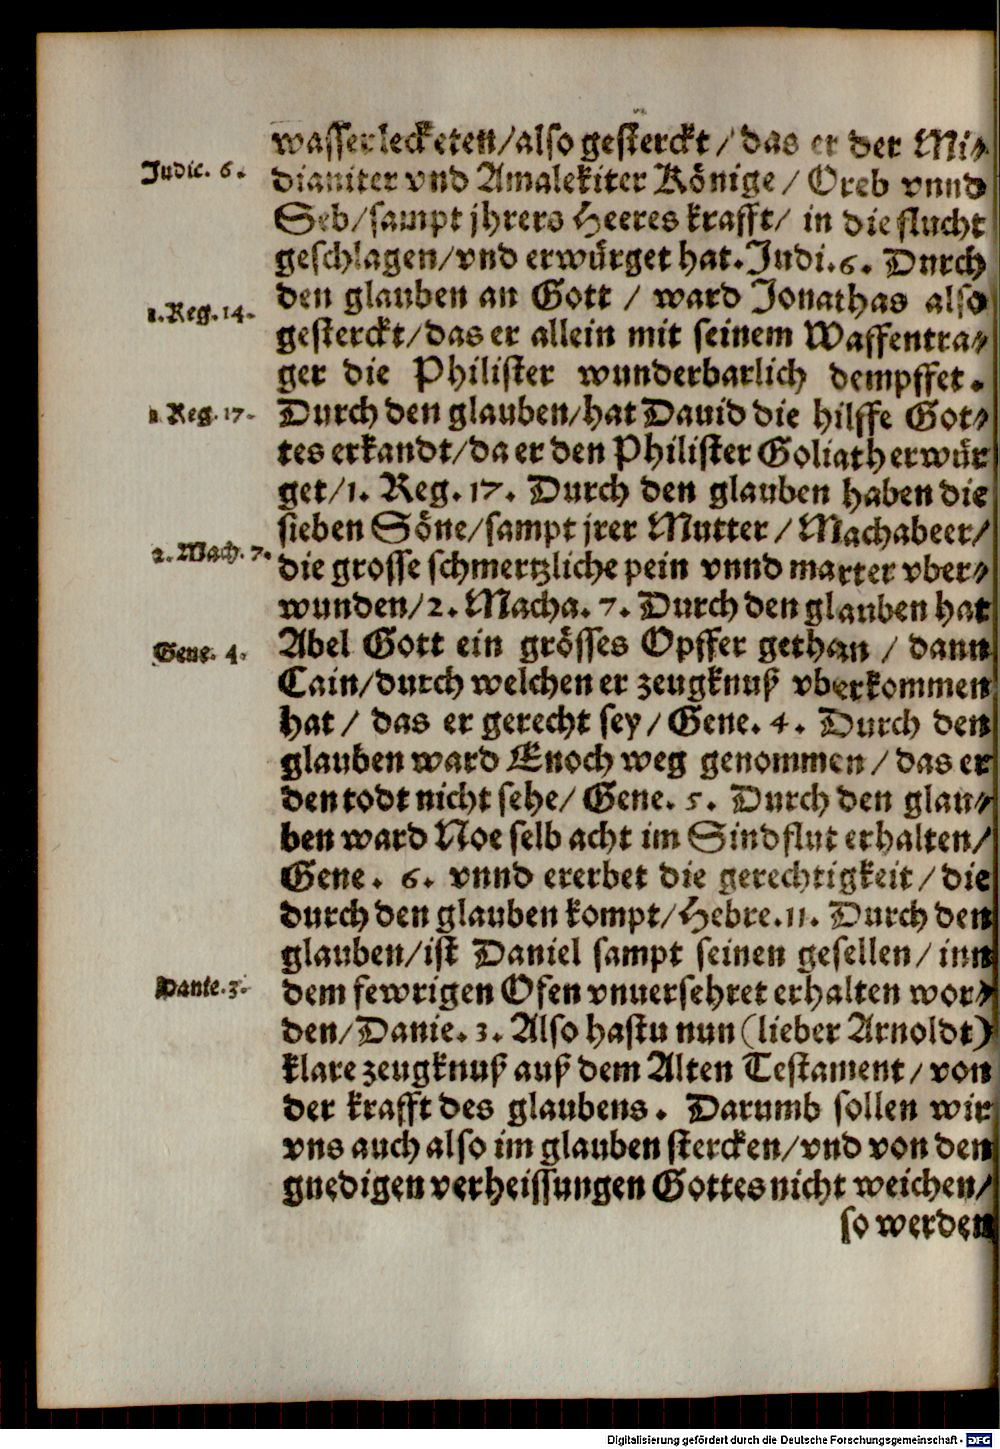 wasser lecketen/also gesterckt / das er der Mi-
Judic. 6. dianiter vnd Amalekiter Könige / Oreb vnnd
Seb/sampt jhrers Heeres krafft/ in die flucht
geschlagen/vnd erwürget hat. Judi. 6. Durch
1. Reg. 14. den glauben an Gott / ward Jonathas also
gesterckt/das er allein mit seinem Waffentra-
ger die Philister wunderbarlich dempffet.
1 Reg. 17. Durch den glauben/hat Dauid die hilffe Got-
tes erkandt/da er den Philister Goliath erwür
get/1. Reg. 17. Durch den glauben haben die
sieben Söne/sampt jrer Mutter / Machabeer/
2. Mach. 7. die grosse schmertzliche pein vnnd marter vber-
wunden/2. Macha. 7. Durch den glauben hat
Gene. 4. Abel Gott ein grösses Opffer gethan / dann
Cain/durch welchen er zeugknuß vberkommen
hat / das er gerecht sey / Gene. 4. Durch den
glauben ward Enoch weg genommen / das er
den todt nicht sehe/ Gene. 5. Durch den glau-
ben ward Noe selb acht im Sindflut erhalten/
Gene. 6. vnnd ererbet die gerechtigkeit / die
durch den glauben kompt/Hebre. 11. Durch den
glauben/ist Daniel sampt seinen gesellen / inn
Danie. 3. dem fewrigen Ofen vnuersehret erhalten wor-
den/Danie. 3. Also hastu nun (lieber Arnoldt)
klare zeugknuß auß dem Alten Testament / von
der krafft des glaubens. Darumb sollen wir
vns auch also im glauben stercken/vnd von den
gnedigen verheissungen Gottes nicht weichen/
so werden
Digitalisierung gefördert durch die Deutsche Forschungsgemeinschaft - DFG